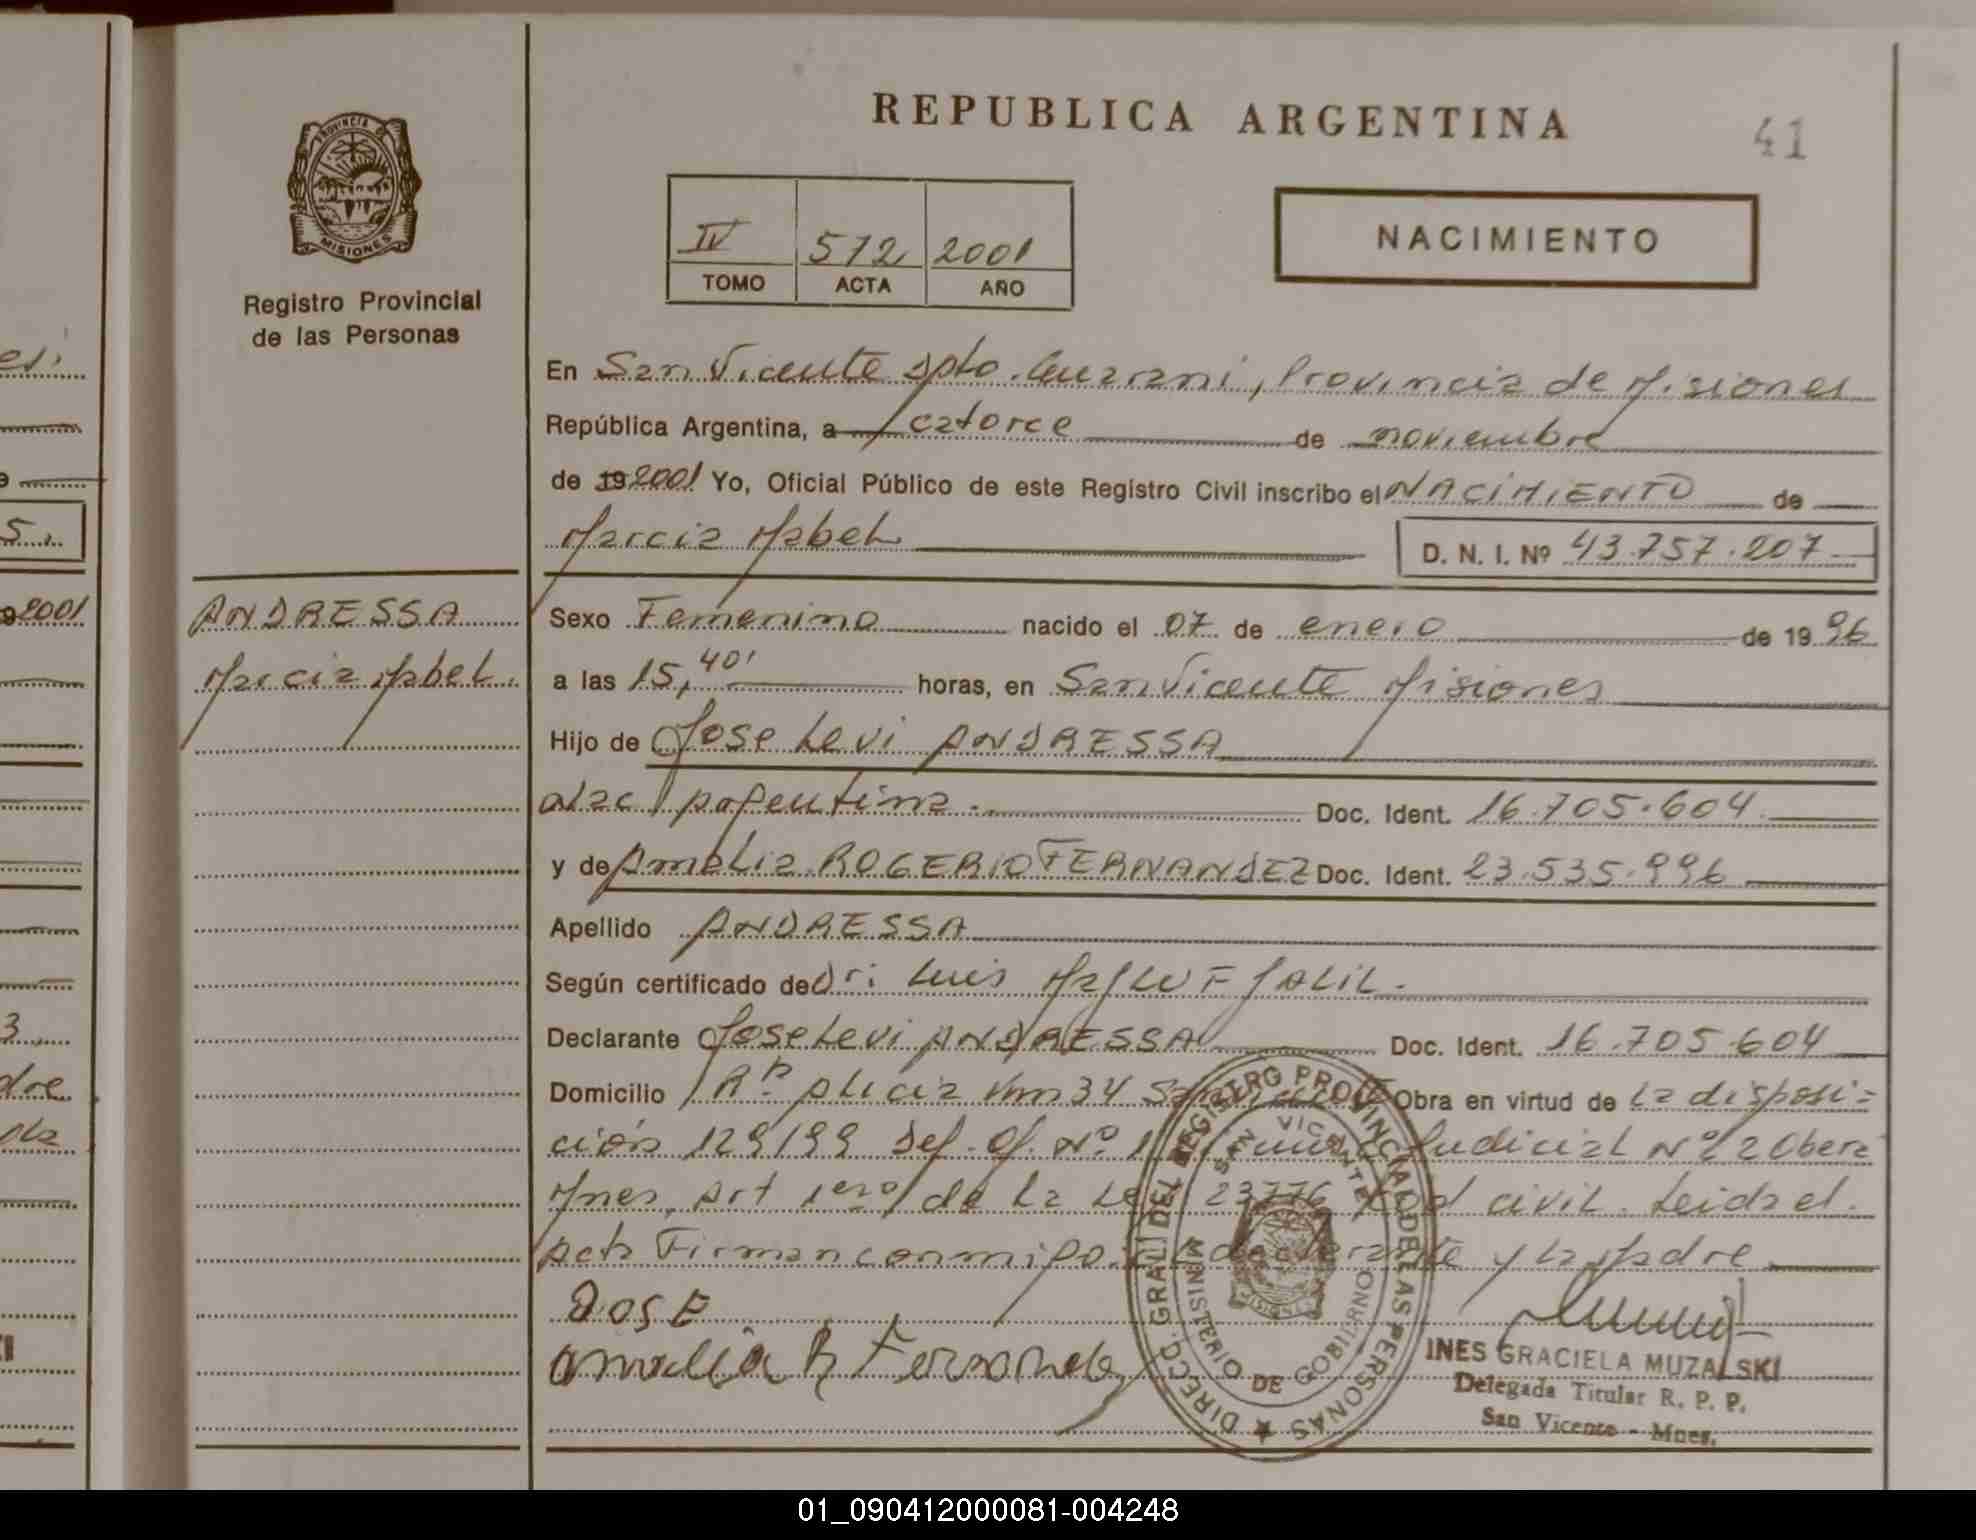 REPUBLICA ARGENTINA
41
PROVINCIA DE
MISIONES
Registro Provincial
de las Personas
IV 572 2001
TOMO ACTA AÑO
NACIMIENTO
En San Vicente Dpto. Guarani, Provincia de Misiones
República Argentina, a catorce de noviembre
de 19 2001 Yo, Oficial Público de este Registro Civil inscribo el NACIMIENTO de
Marcia Mabel D. N. I. Nº 43.757.207
ANDRESSA
Marcia Mabel.
Sexo Femenino nacido el 07 de enero de 19 96
a las 15,40' horas, en San Vicente Misiones
Hijo de Jose Levi ANDRESSA
Nac Argentina. Doc. Ident. 16.705.604
y de Amelia ROGERIO FERNANDEZ Doc. Ident. 23.535.996
Apellido ANDRESSA
Según certificado de Dr: Luis MaJLUF JALIL.
Declarante Jose Levi ANDRESSA Doc. Ident. 16.705.604
Domicilio Rª Alicia Km 34 San Obra en virtud de La disposi=
ción 129/99 Def. Of. Nº 1 Judicial Nº 2 Obera
Mnes, Art 1ero de La Le 23776 Cod civil. Leida el.
Acta Firman conmigo declarante y La Madre
JOSE
amelia R Fernande
DIRECC. GRAL. DEL REGISTRO PROVINCIAL DE LAS PERSONAS
SAN VICENTE
MINISTERIO DE GOBIERNO
MISIONES
INES GRACIELA MUZALSKI
Delegada Titular R. P. P.
San Vicente - Mnes.
2001
01_090412000081-004248